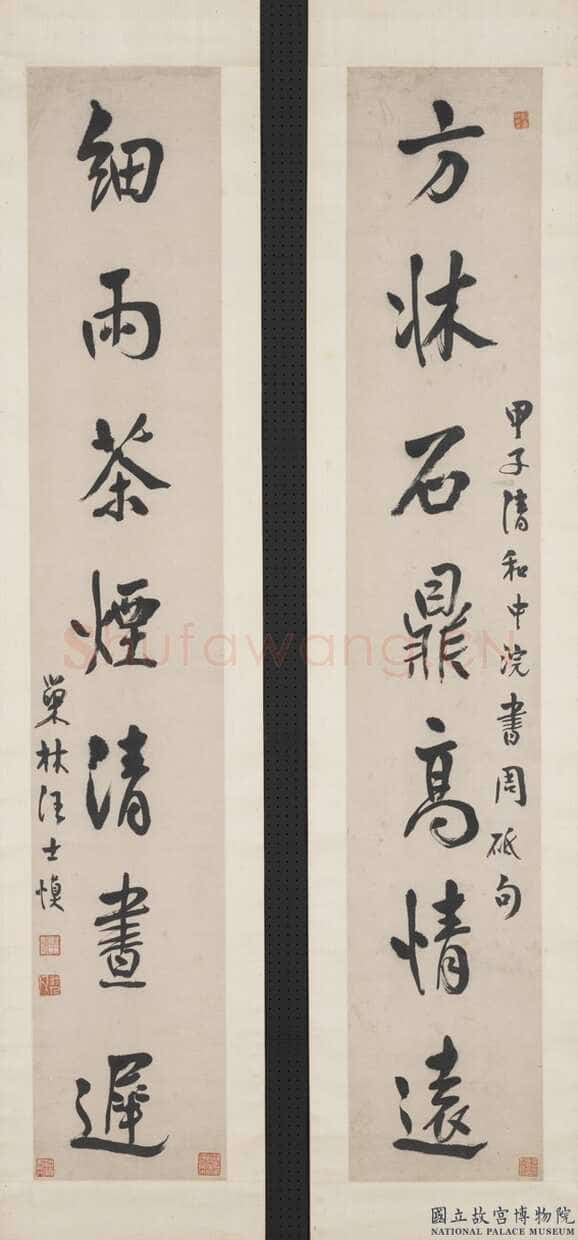 方牀石鼎高情遠
甲子清和中浣書周砥句
細雨茶煙清晝遲
巢林汪士慎
Shufawang.CN
國立故宮博物院
NATIONAL PALACE MUSEUM